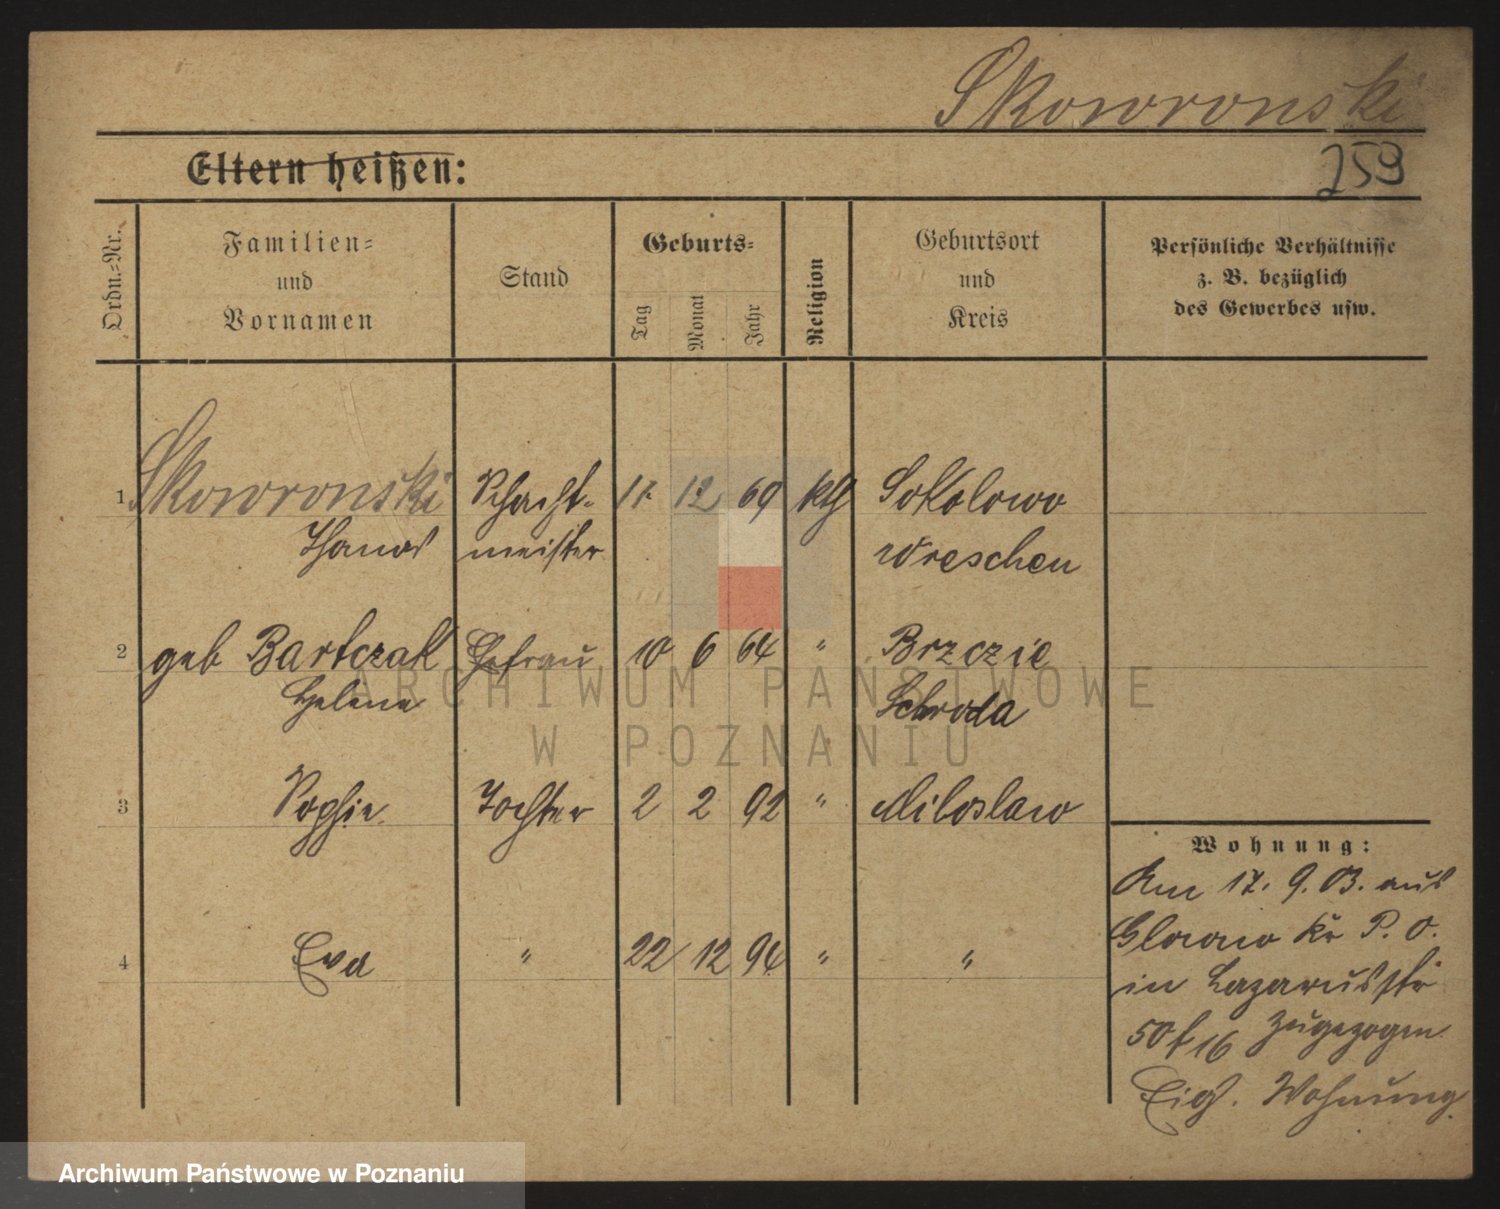 Skowronski
Eltern heißen:
259
Ordn.-Nr.
Familien-
und
Vornamen
Stand
Geburts-
Tag
Monat
Jahr
Religion
Geburtsort
und
Kreis
Persönliche Verhältnisse
z. B. bezüglich
des Gewerbes usw.
1 Skowronski Schacht- 11. 12 69 kth Sokolowo
meister Wreschen
2 geb Bartczak Ehefrau 10 6 64 " Brzczie
Helene Schroda
3 Sophie Tochter 2 2 92 " Miloslaw
4 Eva " 22 12 94 " "
Wohnung:
Am 17. 9. 03. aus
Glowno Kr P. O.
in Lazarusstr
50 f 16 zugezogen
Eig. Wohnung.
ARCHIWUM PAŃSTWOWE
W POZNANIU
Archiwum Państwowe w Poznaniu